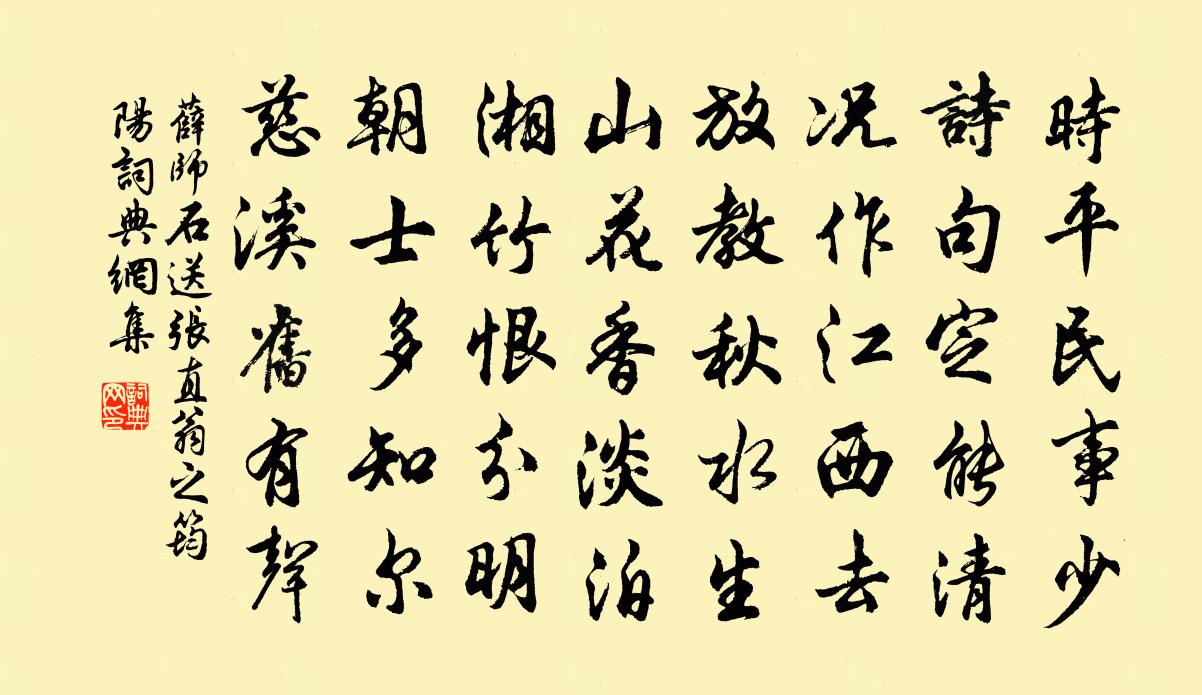 時平民事少
詩句定能清
况作江西去
放教秋水生
山花香淡泊
湘竹恨分明
朝士多知尔
慈溪舊有聲
薛師石送張直翁之筠
陽詞典網集
詞典
网印